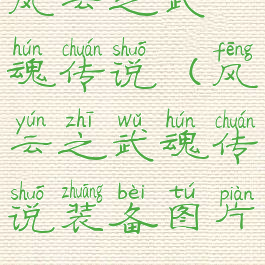 风云之武
hún chuán shuō fēng
魂传说（风
yún zhī wǔ hún chuán
云之武魂传
shuō zhuāng bèi tú piàn
说装备图片